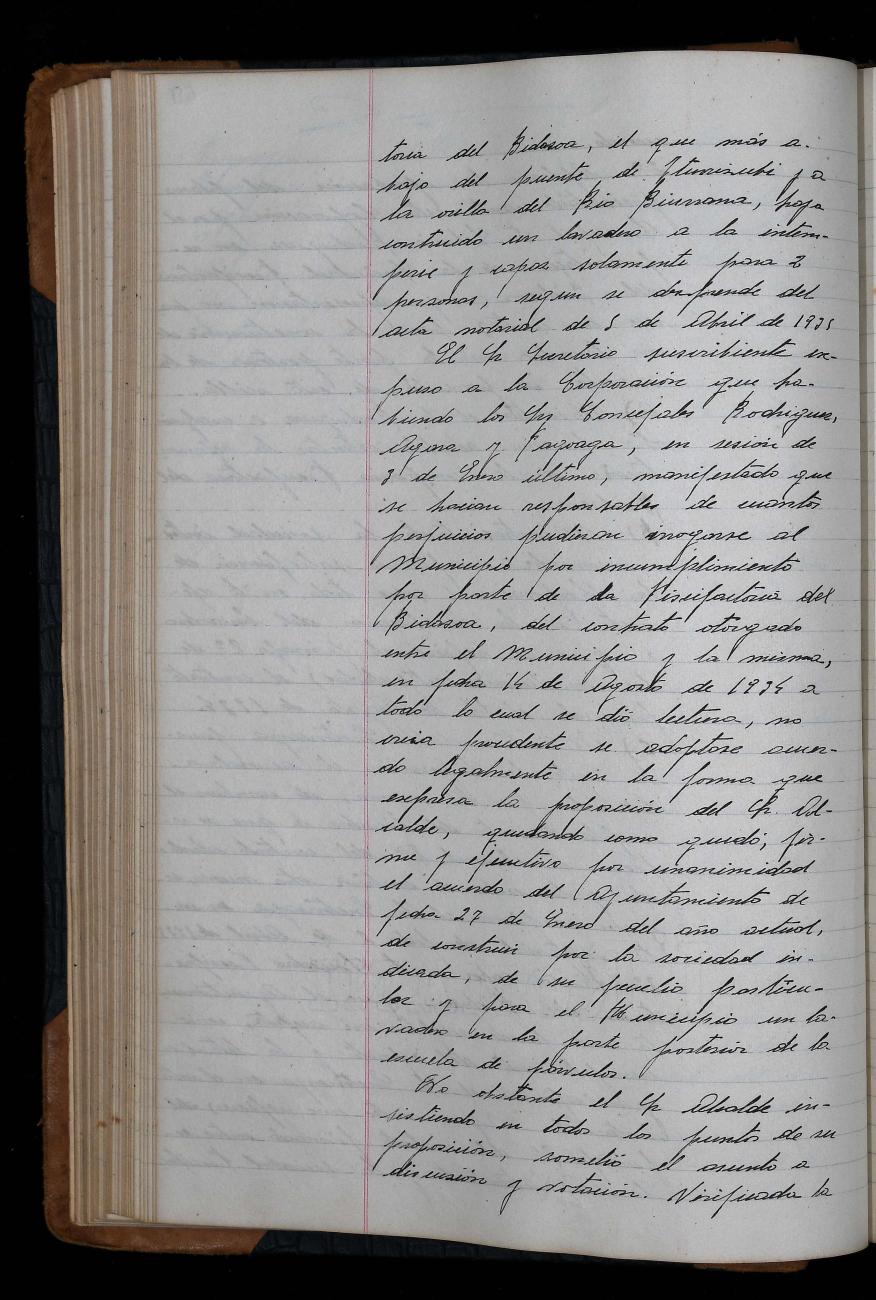 toria del Bidasoa, el que más a-
bajo del puente de Iturrizubi y a
la orilla del Río Biurrana, haya
construido un lavadero a la intem-
perie y capaz solamente para 2
personas, segun se desprende del
acta notarial de 5 de Abril de 1935
El Sr Secretario suscribiente ex-
puso a la Corporación que ha-
biendo los Srs Concejales Rodriguez,
Agara y Fagoaga, en sesión de
3 de Enero último, manifestado que
se hacian responsables de cuantos
perjuicios pudieran irrogarse al
Municipio por incumplimiento
por parte de la Piscifactoria del
Bidasoa, del contrato otorgado
entre el Municipio y la misma,
en fecha 14 de Agosto de 1934 a
todo lo cual se dió lectura, no
creia procedente se adoptase acuer-
do legalmente en la forma que
expresa la proposición del Sr. Al-
calde, quedando como quedó, fir-
me y ejecutivo por unanimidad
el acuerdo del Ayuntamiento de
fecha 27 de Enero del año actual,
de construir por la sociedad in-
dicada, de su peculio particu-
lar y para el Municipio un la-
vadero en la parte posterior de la
escuela de párvulos.
No obstante el Sr Alcalde in-
sistiendo en todos los puntos de su
proposición, sometió el asunto a
discusión y votación. Verificada la